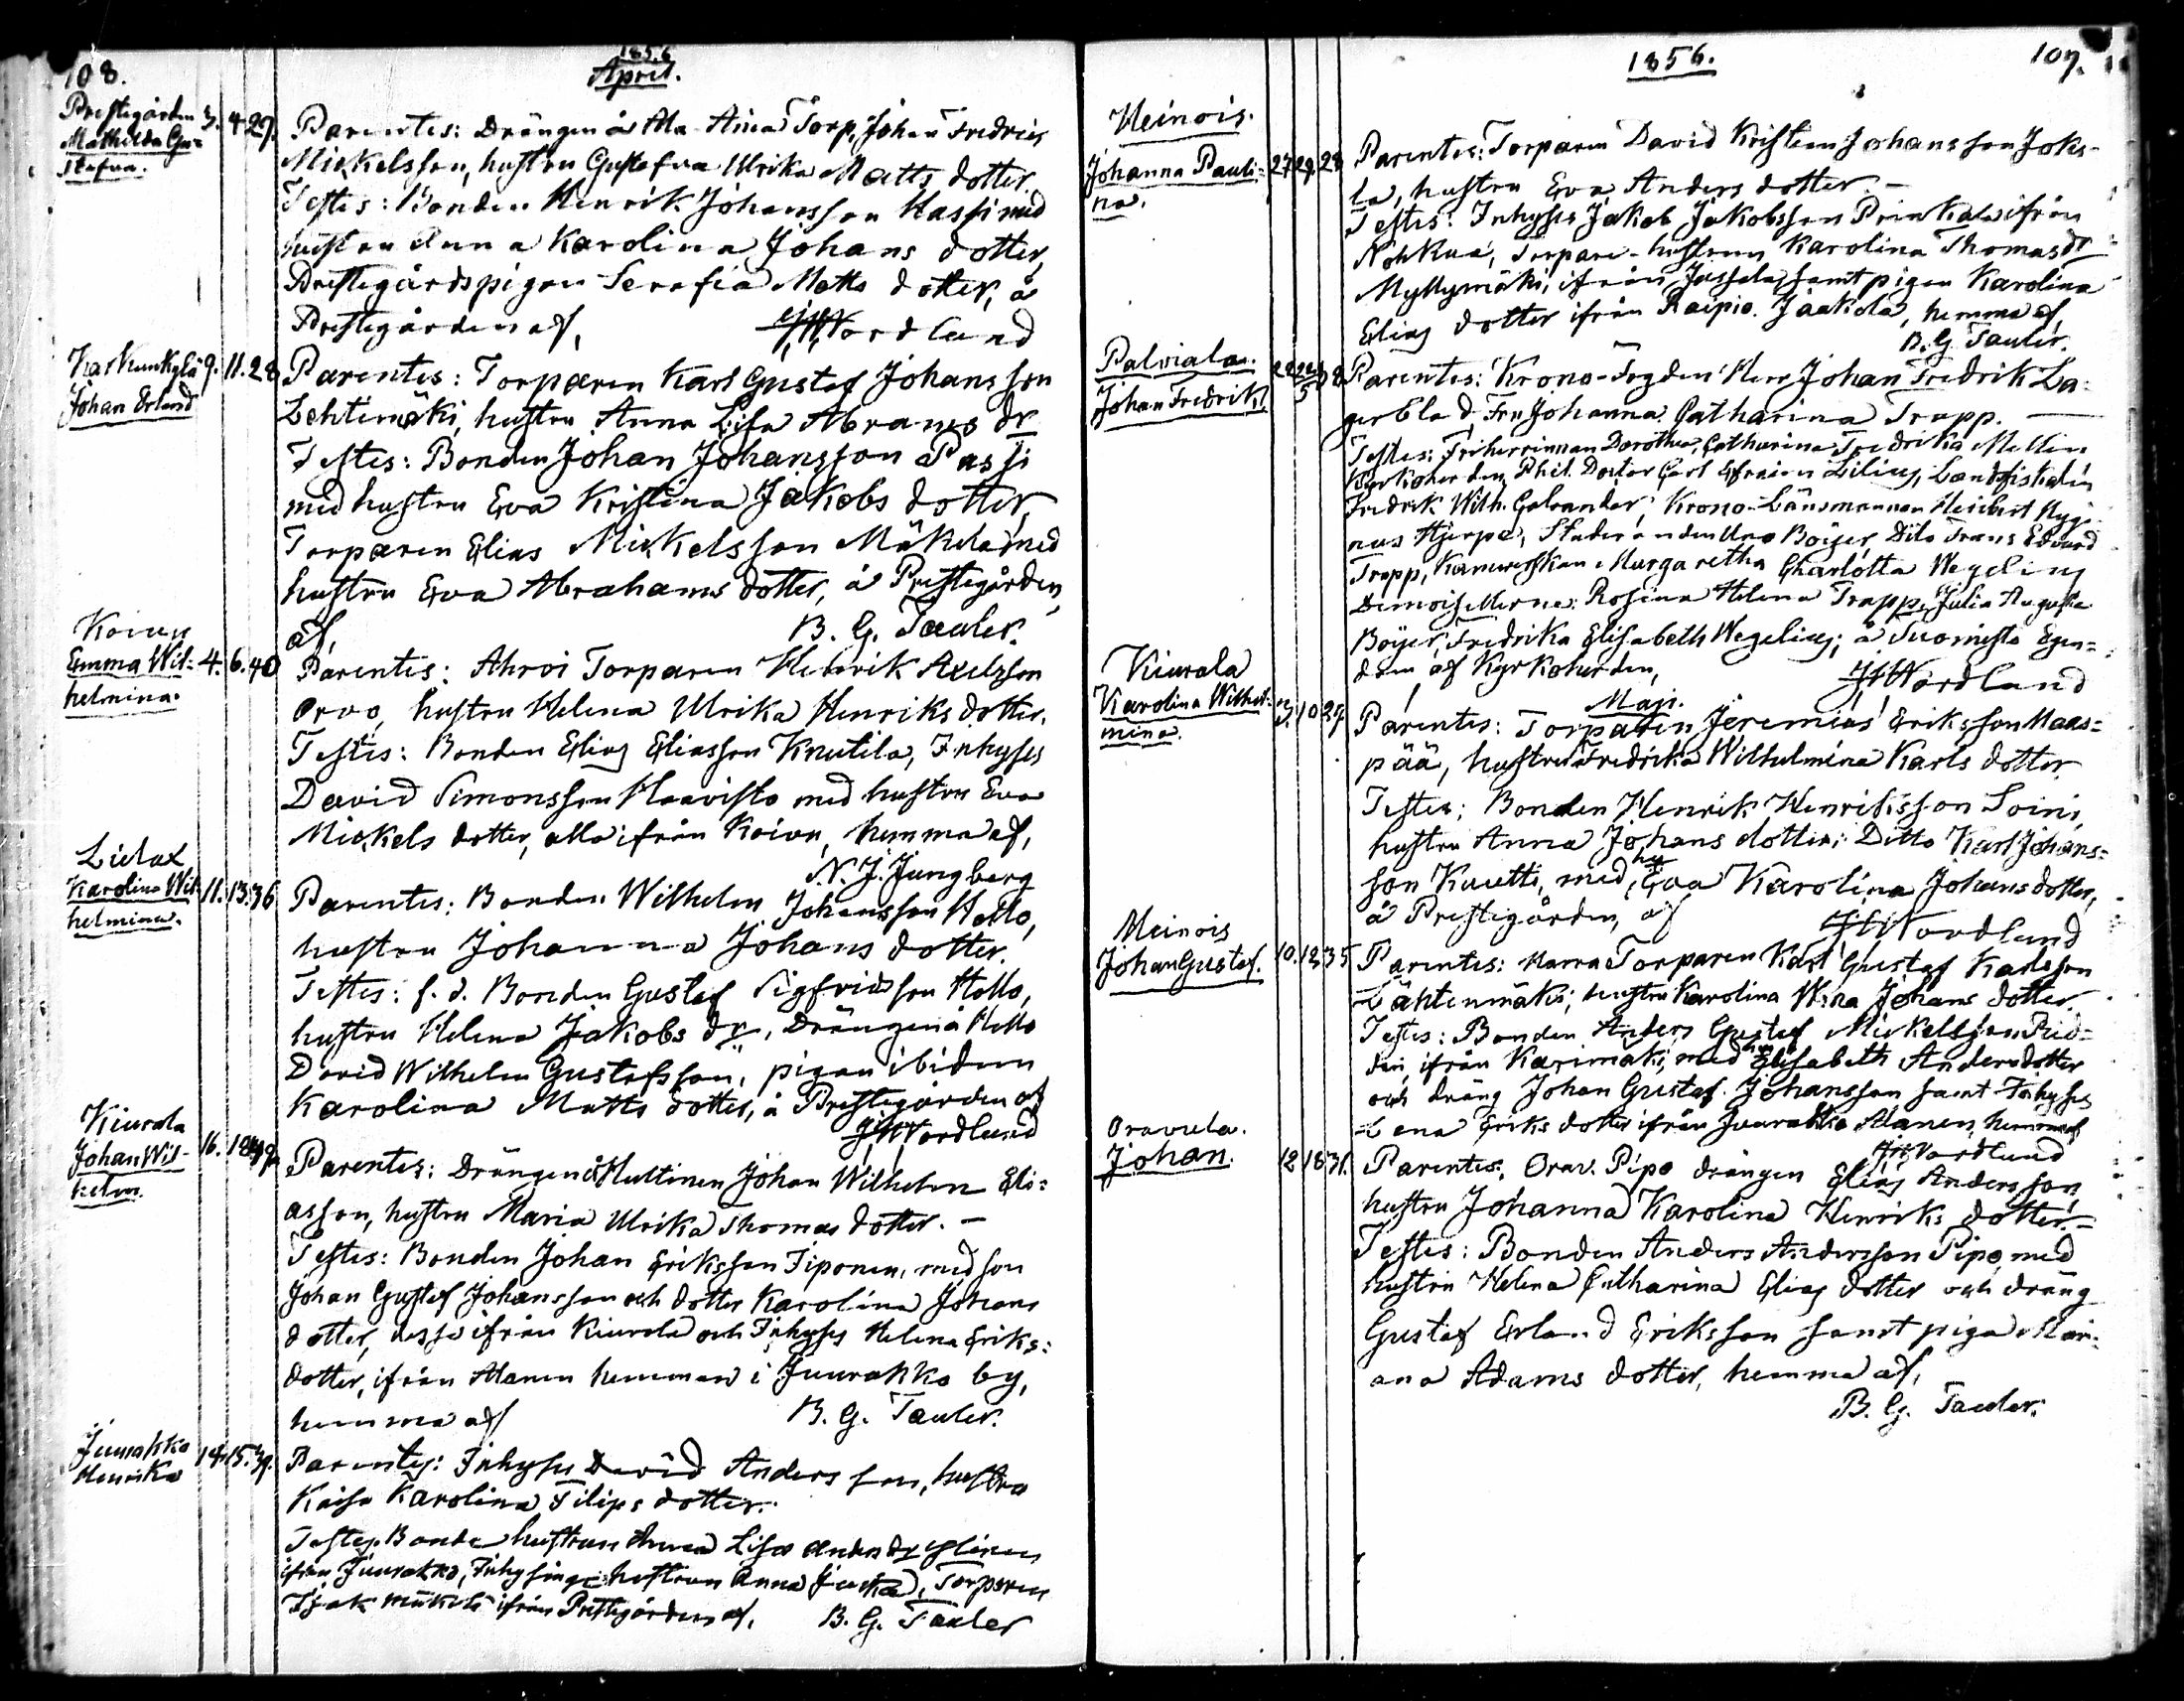 108.
1856
April.
Prestegården 3. 4. 29.
Mathilda Gu=
stafva.
Parentes: Drängen å Ala Torp, Johan Fredrics
Mickelsson, hustru Gustafva Ulrika Matts dotter.
Testes: Bonden Henrik Johansson Hassi med
hustru Anna Karolina Johans dotter,
Prestegårdspigan Serafia Matts dotter, å
Prestegården af, Nordlund
Karkunkylä 9. 11. 28
Johan Erland
Parentes: Torparen Karl Gustaf Johansson
Lehtimäki, hustru Anna Lisa Abrams dr
Testes: Bonden Johan Johansson Passi
med hustru Eva Kristina Jakobs dotter,
Torparen Elias Mickelsson Mäkelä med
hustru Eva Abrahams dotter, å Prestegården,
af, B. G. Tauler.
Koivu
Emma Wil= 4. 6. 40
helmina.
Parentes: Ahroi Torparen Henrik Axelsson
Orvo, hustru Helena Ulrika Henriks dotter.
Testes: Bonden Elias Eliasson Knutila, Inhyses
David Simonsson Haavisto med hustru Eva
Mickels dotter, alla ifrån Koivu, hemma af,
N. J. Jungberg
Lielax
Karolina Wil= 11. 13. 36
helmina.
Parentes: Bonden Wilhelm Johansson Hollo,
hustru Johanna Johans dotter.
Testes: f. d. Bonden Gustaf Sigfridsson Hollo,
hustru Helena Jakobs dr, Drängen å Hollo
David Wilhelm Gustafsson, pigan ibidem
Karolina Matts dotter, å Prestegården af
Nordlund
Kiurala
Johan Wil= 16. 18.
helm.
Parentes: Drängen å Huttinen Johan Wilhelm Eli=
asson, hustru Maria Ulrika Thomas dotter. –
Testes: Bonden Johan Eriksson Tiponen, med son
Johan Gustaf Johansson och dotter Karolina Johans
dotter, desse ifrån Kiurala och Inhyses Helena Eriks=
dotter, ifrån Alanen hemman i Juurakko by,
hemma af B. G. Tauler.
Juurakko 14. 15. 39.
Henrika
Parentes: Inhyses David Andersson, hustru
Kaisa Karolina Filips dotter.
Testes. Bonde hustrun Anna Lisa Anders dr
ifrån Juurakko, Inhysinge hustrun Anna Juuka, Torparen
Isak Mäkelä ifrån Prestegården af. B. G. Tauler
1856.
109.
Heinois.
Johanna Pauli= 27. 29. 28
na.
Parentes: Torparen David Kristian Johansson Joki=
la, hustru Eva Anders dotter. –
Testes: Inhyses Jakob Jakobsson Prinkala ifrån
Nohkua, Torpare-hustrun Karolina Thomasdr
Myllymäki, ifrån Jassala, samt pigan Karolina
Elias dotter ifrån Raipio. Jaakola, hemma af
B. G. Tauler.
Palviala.
Johan Fredrik
Parentes: Krono-Fogden Herr Johan Fredrik La=
gerblad, Fru Johanna Catharina Trapp. –
Testes: Friherrinnan Dorothea Catharina Fredrika Mellin
Kyrkoherden, Phil. Doctor Carl Efraim Lilius, Landfiskalen
Fredrik Wilh. Gelvander, Krono-Länsmannen Heribert Hyg=
nus Hjerpe, Studeranden Uno Böijer, Dito Frans Edvard
Trapp, Kamrerskan Margaretha Charlotta Wegelius
Demoisellerne: Rosina Helena Trapp, Julia Augusta
Böijer, Fredrika Elisabeth Wegelius; å Suomisto Egen=
dom af Kyrkoherden,
Nordlund
Maji.
Kiurala
Karolina Wilhel= 3. 10. 29.
mina.
Parentes: Torparen Jeremias Eriksson Maas=
pää, hustru Fredrika Wilhelmina Karls dotter
Testes: Bonden Henrik Henriksson Soini,
hustru Anna Johans dotter; Ditto Karl Johans=
son Kuutti, med hu Eva Karolina Johans dotter,
å Prestegården, af
Nordlund
Heinois
Johan Gustaf. 10. 18. 35
Parentes: Marra Torparen Karl Gustaf Karlsson
Lähtenmäki, hustru Karolina Wina Johans dotter.
Testes: Bonden Anders Gustaf Mickelsson Pud=
ifrån Karimäki, med Elisabeth Anders dotter
och dräng Johan Gustaf Johansson samt Inhyses
Lena Eriks dotter ifrån Juurakko Alanen, hemma af
Nordlund
Oravula.
Johan. 12. 18. 31.
Parentes: Orav. Pipo drängen Elias Andersson,
hustru Johanna Karolina Henriks dotter. –
Testes: Bonden Anders Andersson Pipo, med
hustru Helena Catharina Elias dotter och dräng
Gustaf Erland Eriksson samt piga Mari=
ana Adams dotter, hemma af,
B. G. Tauler.